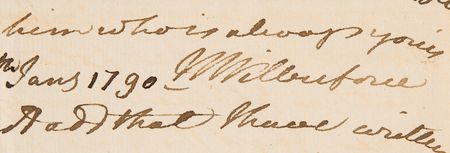 him who is always yours
th Jany 1790 W Wilberforce
to add that I have written